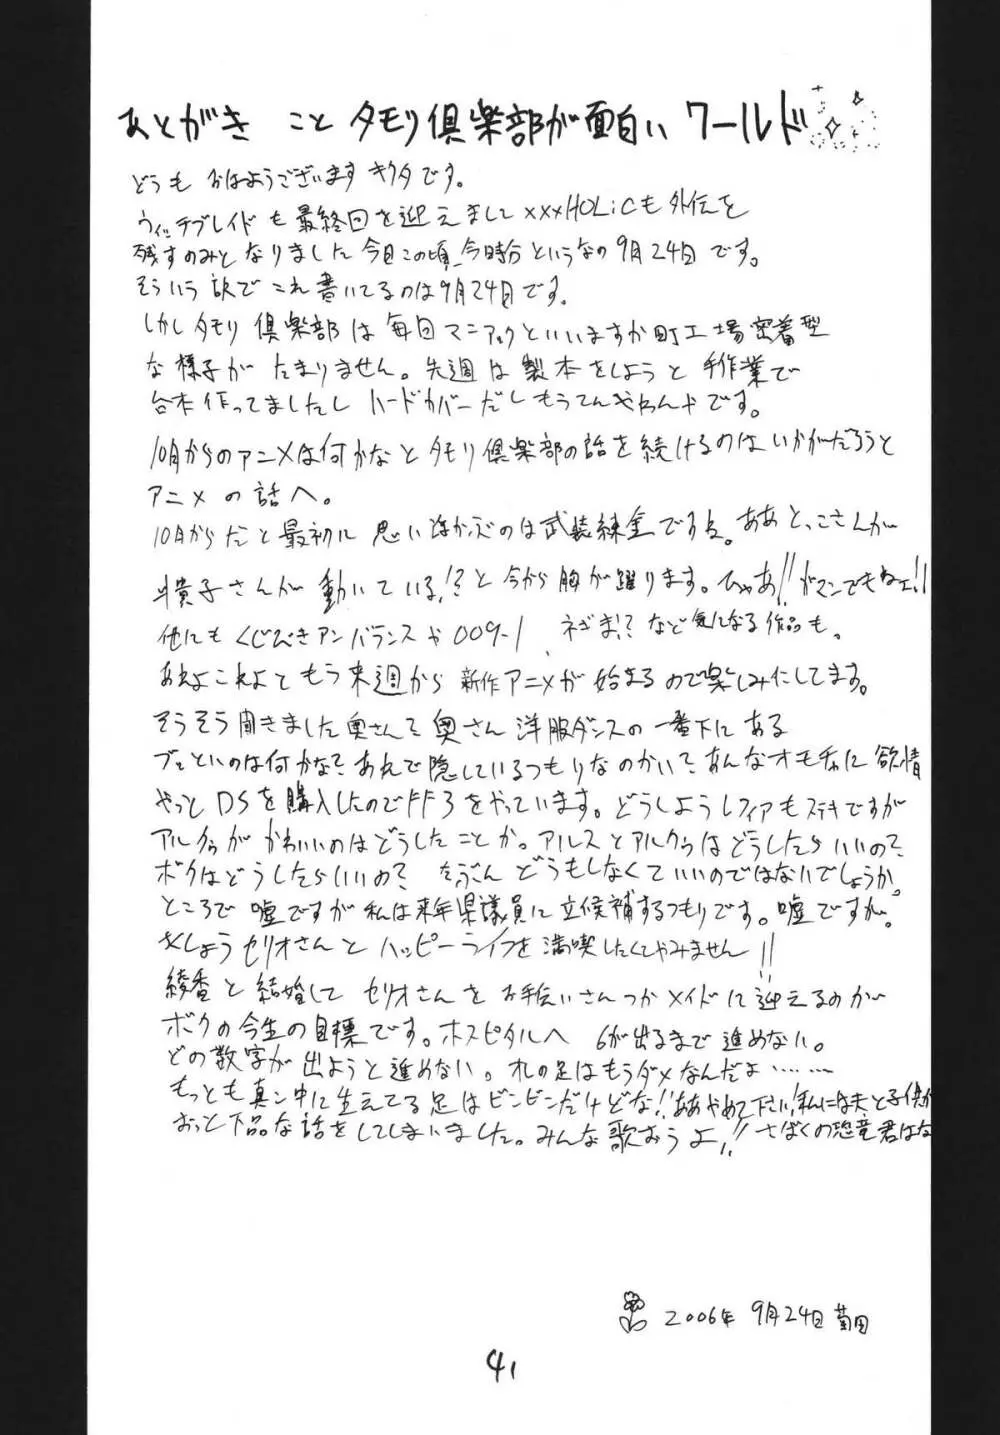 あとがき こと タモリ倶楽部が面白い ワールド
どうも おはようございます キクタです。
ウィッチブレイドも最終回を迎えまして×××HOLiCも外伝を
残すのみとなりました今日この頃、今時分というなの9月24日です。
そういう訳でこれ書いてるのは9月24日です。
しかしタモリ倶楽部は毎回マニアックといいますか町工場密着型
な様子がたまりません。先週は製本をしようと手作業で
合本作ってましたし ハードカバーだしもうてんやわんやです。
10月からのアニメは何かなとタモリ倶楽部の話を続けるのはいかがだろうと
アニメの話へ。
10月からだと最初に思い浮かぶのは武装錬金ですね。ああとっこさんが
斗貴子さんが動いている!?と今から胸が躍ります。ひゃあ!!ガマンできねェ!!
他にもくじびきアンバランスや009-1、ネギま!?など気になる作品も。
あれよこれよともう来週から新作アニメが始まるので楽しみにしてます。
そうそう聞きました奥さんて奥さん洋服ダンスの一番下にある
といのは何かな?あれで隠しているつもりなのかい?あんなオモチャに欲情
やっとDSを購入したのでFF3をやっています。どうしようレフィアもステキですが
アルクゥがかわいいのはどうしたことか。アルスとアルクゥはどうしたらいいの?
ボクはどうしたらいいの?たぶんどうもしなくていいのではないでしょうか。
ところで嘘ですが私は来年県議員に立候補するつもりです。嘘ですが。
ちくしょうセリオさんとハッピーライフを満喫したくてやみません!!
綾香と結婚してセリオさんをお手伝いさんつかメイドに迎えるのが
ボクの今生の目標です。ホスピタルへ 6が出るまで進めない。
どの数字が出ようと進めない。オレの足はもうダメなんだよ……
もっとも真ン中に生えてる足はビンビンだけどな!!ああやめて下さい!私には夫と子供が
おっと下品な話をしてしまいました。みんな歌おうよ!!さばくの恐竜君はな
2006年 9月24日 菊田
41